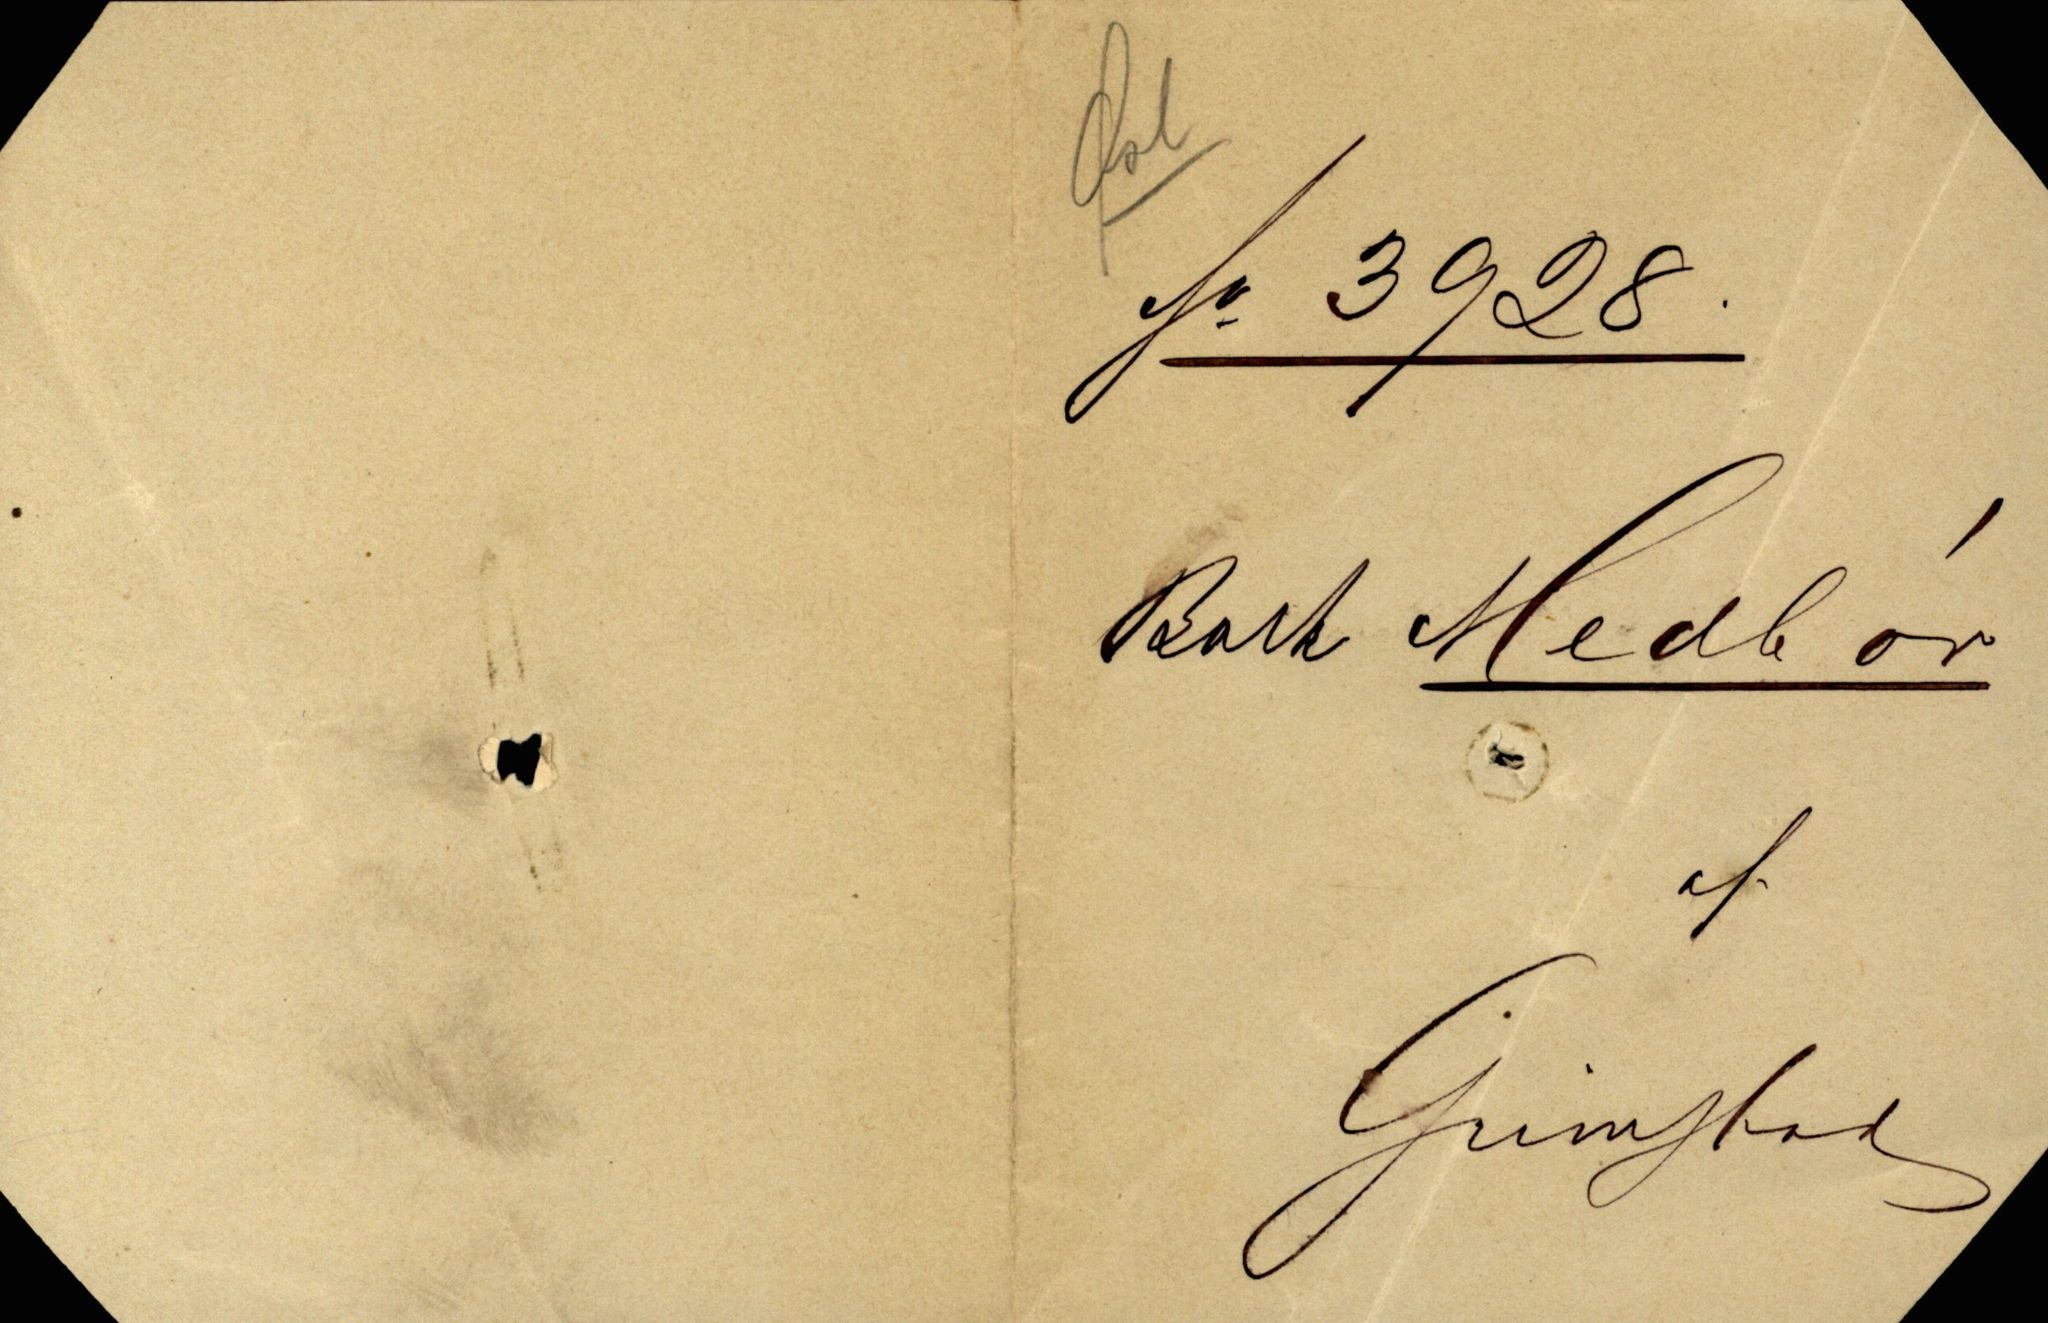 No 3928.
Bark Medbør
af
Grimstad